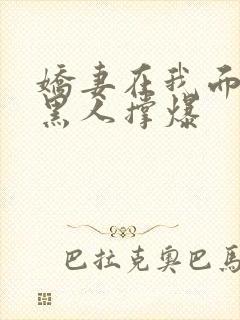 嬌妻在我而
黑人撐爆
巴拉克奧巴馬